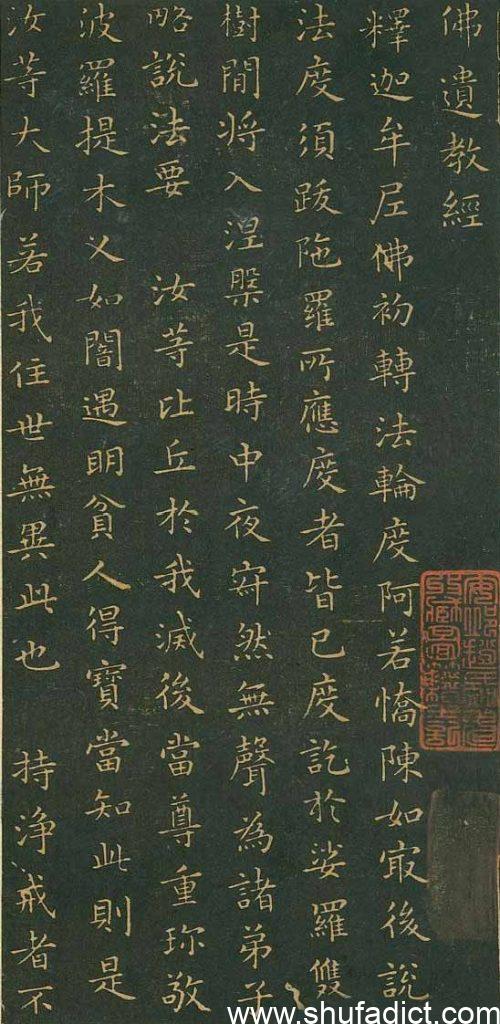 佛遺教經
釋迦牟尼佛初轉法輪度阿若憍陳如冣後說
法度須跋陁羅所應度者皆已度訖於娑羅雙
樹間將入涅槃是時中夜寂然無聲為諸弟子
略說法要 汝等比丘於我滅後當尊重珎敬
波羅提木叉如闇遇明貧人得寶當知此則是
汝等大師若我住世無異此也 持淨戒者不
www.shufadict.com